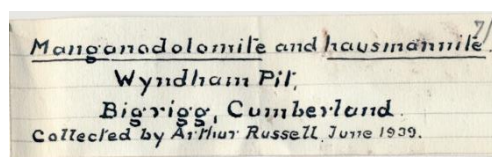 7/
Manganodolomite and hausmannite
Wyndham Pit,
Bigrigg, Cumberland.
Collected by Arthur Russell, June 1939.